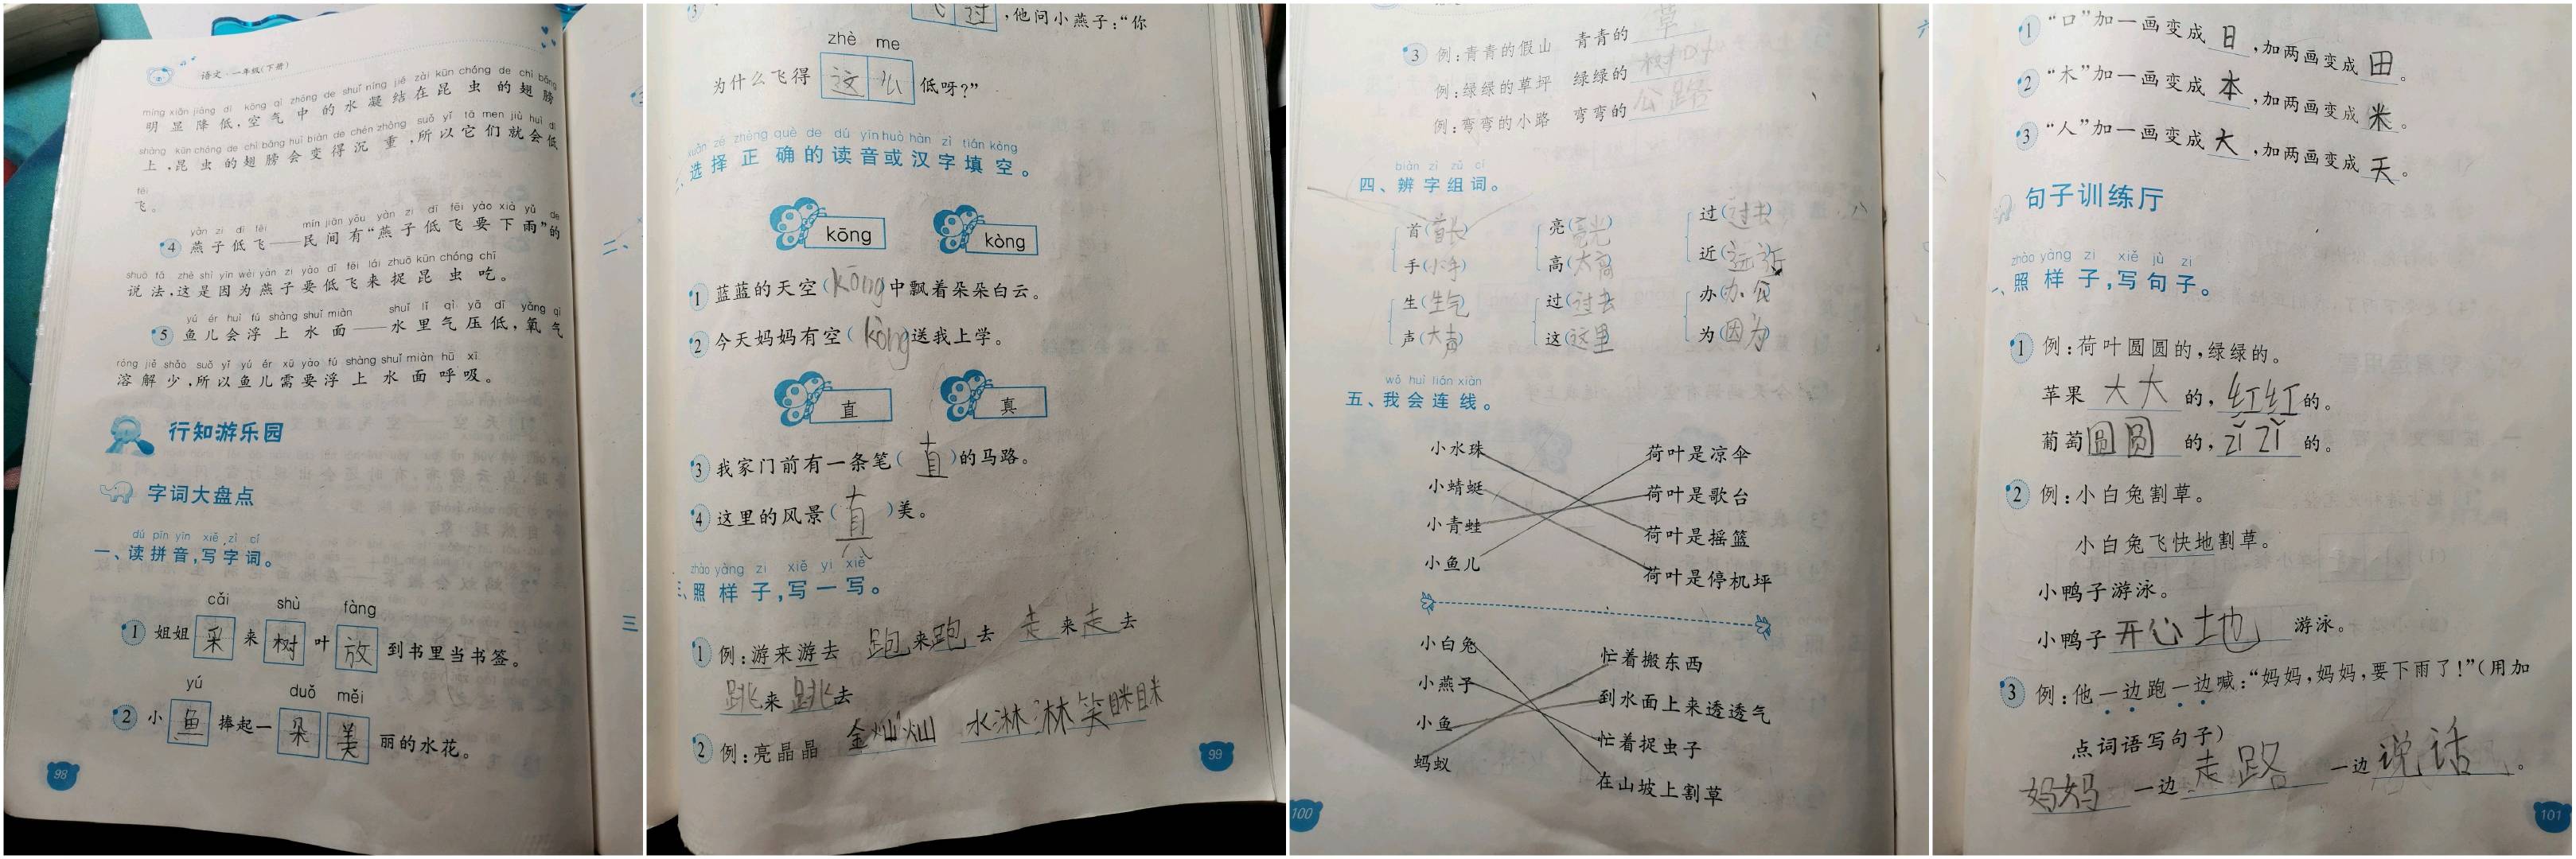 语文·一年级(下册)
míng xiǎn jiàng dī kōng qì zhōng de shuǐ níng jié zài kūn chóng de chì bǎng
明显降低,空气中的水凝结在昆虫的翅膀
shàng kūn chóng de chì bǎng huì biàn de chén zhòng suǒ yǐ tā men jiù huì dī
上,昆虫的翅膀会变得沉重,所以它们就会低
fēi
飞。
yàn zi dī fēi mín jiān yǒu yàn zi dī fēi yào xià yǔ de
4 燕子低飞——民间有“燕子低飞要下雨”的
shuō fǎ zhè shì yīn wèi yàn zi yào dī fēi lái zhuō kūn chóng chī
说法,这是因为燕子要低飞来捉昆虫吃。
yú ér huì fú shàng shuǐ miàn shuǐ lǐ qì yā dī yǎng qì
5 鱼儿会浮上水面——水里气压低,氧气
róng jiě shǎo suǒ yǐ yú ér xū yào fú shàng shuǐ miàn hū xī
溶解少,所以鱼儿需要浮上水面呼吸。
行知游乐园
字词大盘点
dú pīn yīn xiě zì cí
一、读拼音,写字词。
cǎi shù fàng
1 姐姐采来树叶放到书里当书签。
yú duǒ měi
2 小鱼捧起一朵美丽的水花。
98
3 飞过,他问小燕子:“你
zhè me
为什么飞得这么低呀?”
xuǎn zé zhèng què de dú yīn huò hàn zì tián kòng
二、选择正确的读音或汉字填空。
kōng kòng
1 蓝蓝的天空(kōng)中飘着朵朵白云。
2 今天妈妈有空(kòng)送我上学。
直 真
3 我家门前有一条笔(直)的马路。
4 这里的风景(真)美。
zhào yàng zi xiě yi xiě
三、照样子,写一写。
1 例:游来游去 跑来跑去 走来走去
跳来跳去
2 例:亮晶晶 金灿灿 水淋淋 笑眯眯
99
3 例:青青的假山 青青的草
例:绿绿的草坪 绿绿的树叶
例:弯弯的小路 弯弯的公路
biàn zì zǔ cí
四、辨字组词。
首(首长) 亮(亮光) 过(过去)
手(小手) 高(大高) 近(远近)
生(生气) 过(过去) 办(办公)
声(大声) 这(这里) 为(因为)
wǒ huì lián xiàn
五、我会连线。
小水珠 荷叶是凉伞
小蜻蜓 荷叶是歌台
小青蛙 荷叶是摇篮
小鱼儿 荷叶是停机坪
小白兔 忙着搬东西
小燕子 到水面上来透透气
小鱼 忙着捉虫子
蚂蚁 在山坡上割草
100
1 “口”加一画变成日,加两画变成田。
2 “木”加一画变成本,加两画变成米。
3 “人”加一画变成大,加两画变成天。
句子训练厅
zhào yàng zi xiě jù zi
一、照样子,写句子。
1 例:荷叶圆圆的,绿绿的。
苹果大大的,红红的。
葡萄圆圆的,zǐ zǐ的。
2 例:小白兔割草。
小白兔飞快地割草。
小鸭子游泳。
小鸭子开心地游泳。
3 例:他一边跑一边喊:“妈妈,妈妈,要下雨了!”(用加
点词语写句子)
妈妈一边走路一边说话。
101